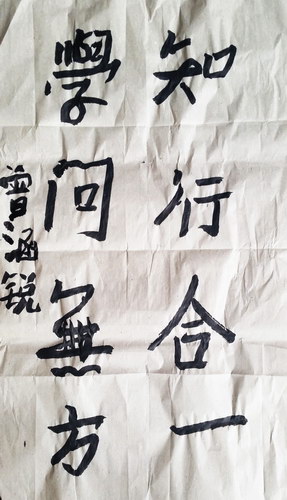 知行合一
學問無方
曾涵锐